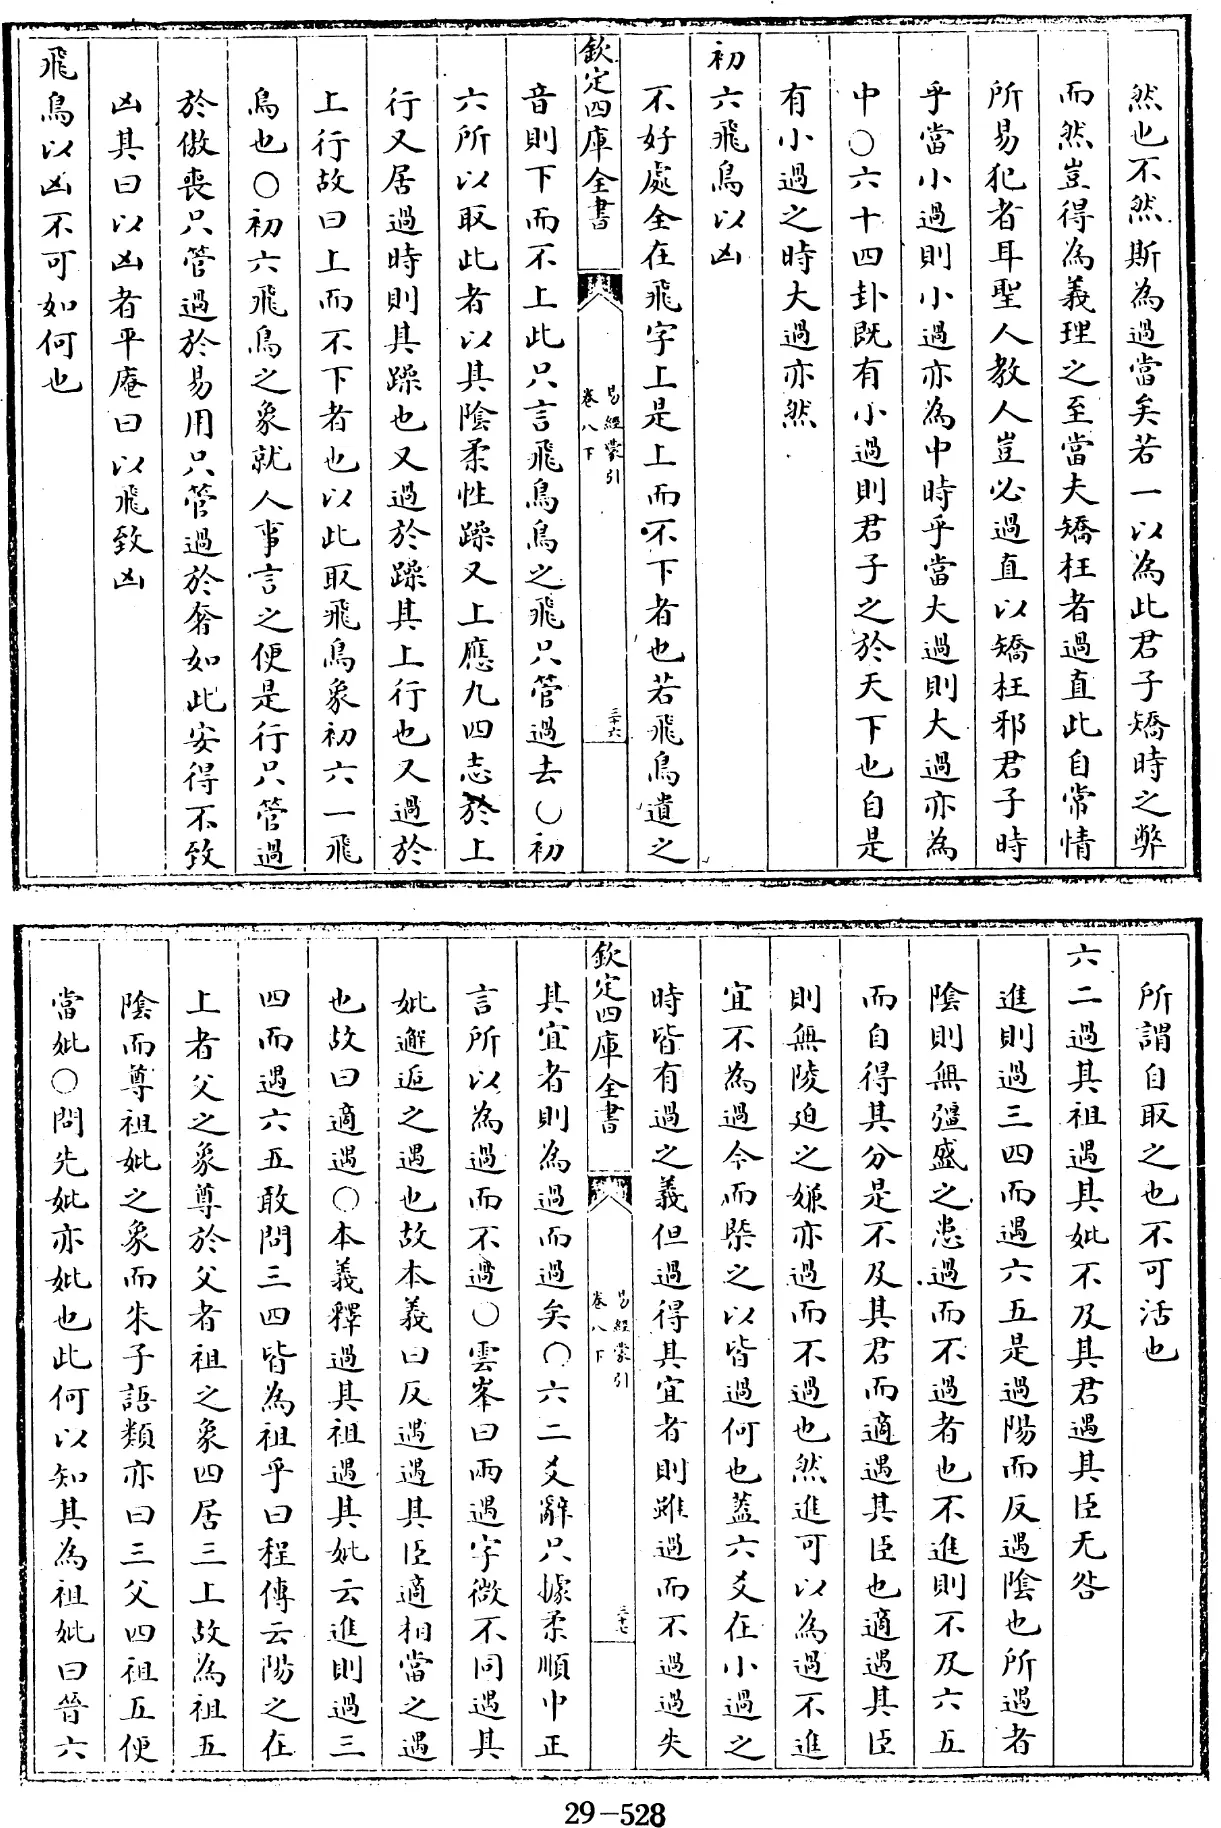 然也不然斯為過當矣若一以為此君子矯時之弊
而然豈得為義理之至當夫矯枉者過直此自常情
所易犯者耳聖人教人豈必過直以矯枉邪君子時
乎當小過則小過亦為中時乎當大過則大過亦為
中○六十四卦既有小過則君子之於天下也自是
有小過之時大過亦然
初六飛鳥以凶
不好處全在飛字上是上而不下者也若飛鳥遺之
欽定四庫全書
易經蒙引
卷八下
三十六
音則下而不上此只言飛鳥鳥之飛只管過去○初
六所以取此者以其陰柔性躁又上應九四志於上
行又居過時則其躁也又過於躁其上行也又過於
上行故曰上而不下者也以此取飛鳥象初六一飛
鳥也○初六飛鳥之象就人事言之便是行只管過
於傲喪只管過於易用只管過於奢如此安得不致
凶其曰以凶者平庵曰以飛致凶
飛鳥以凶不可如何也
所謂自取之也不可活也
六二過其祖遇其妣不及其君遇其臣无咎
進則過三四而遇六五是過陽而反遇陰也所遇者
陰則無彊盛之患過而不過者也不進則不及六五
而自得其分是不及其君而適遇其臣也適遇其臣
則無陵迫之嫌亦過而不過也然進可以為過不進
宜不為過今而槩之以皆過何也蓋六爻在小過之
時皆有過之義但過得其宜者則雖過而不過過失
欽定四庫全書
易經蒙引
卷八下
三十七
其宜者則為過而過矣○六二爻辭只據柔順中正
言所以為過而不過○雲峯曰兩遇字微不同遇其
妣邂逅之遇也故本義曰反遇遇其臣適相當之遇
也故曰適遇○本義釋過其祖遇其妣云進則過三
四而遇六五敢問三四皆為祖乎曰程傳云陽之在
上者父之象尊於父者祖之象四居三上故為祖五
陰而尊祖妣之象而朱子語類亦曰三父四祖五便
當妣○問先妣亦妣也此何以知其為祖妣曰晉六
29-528